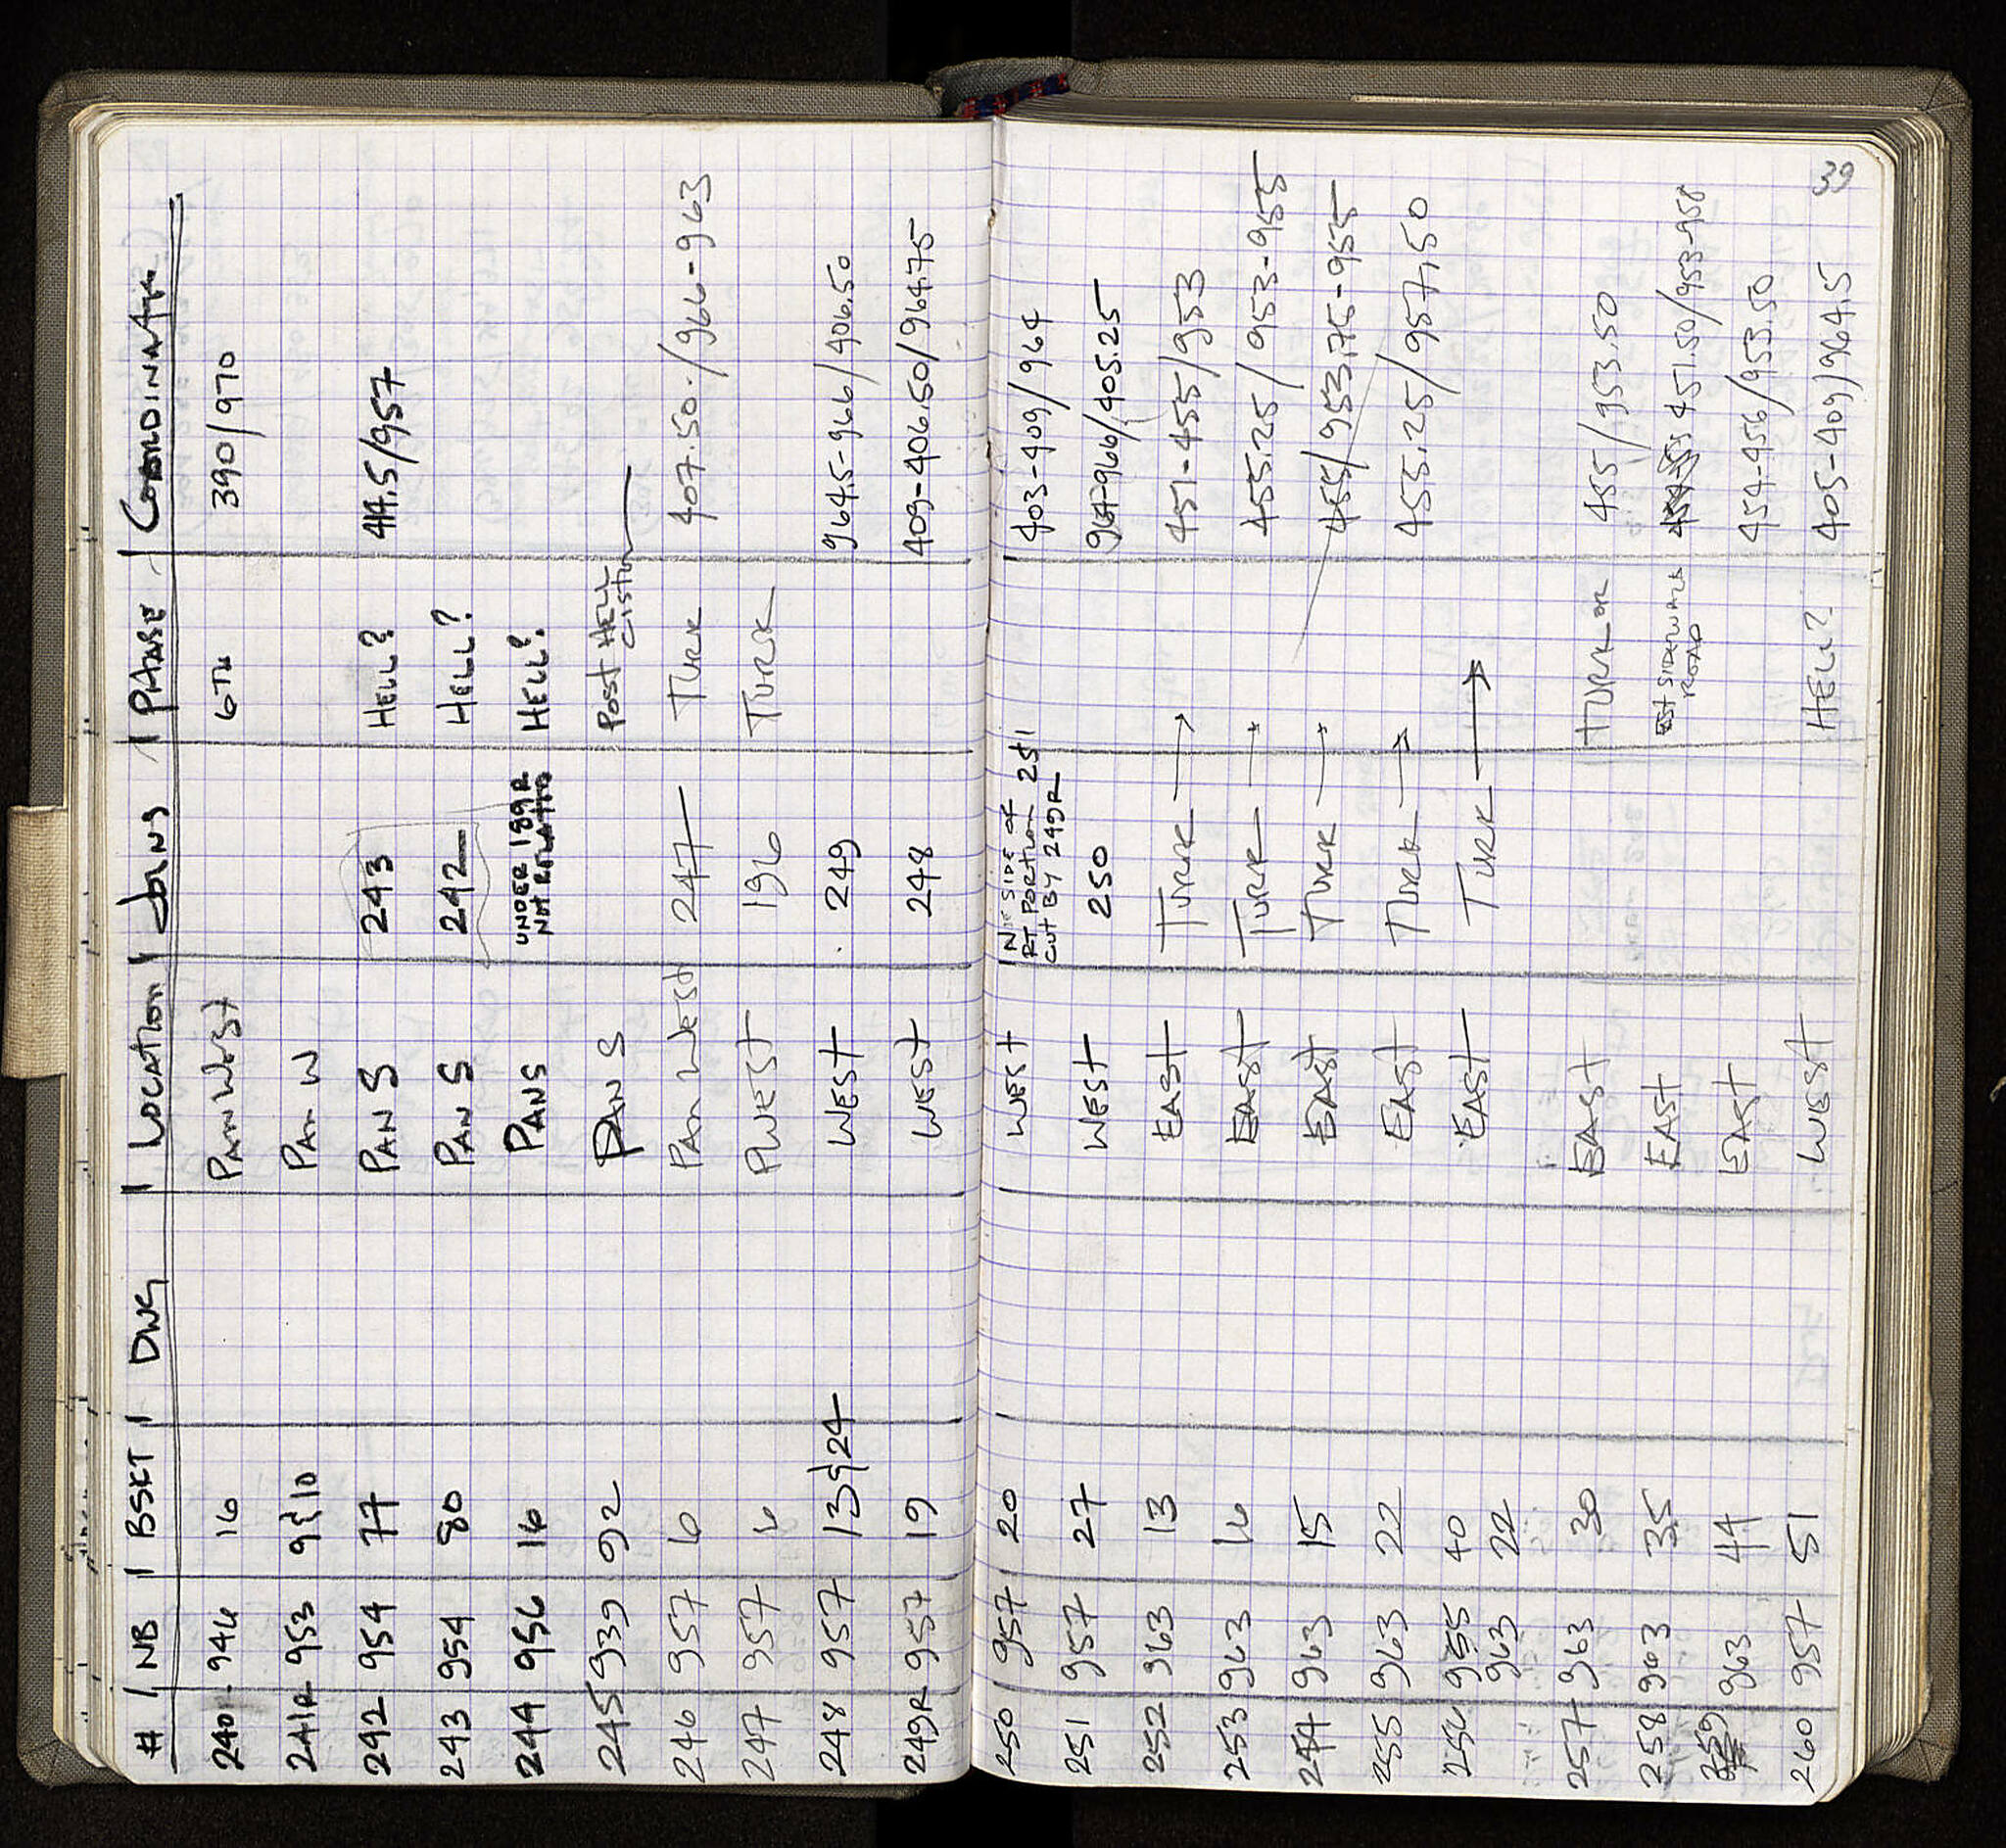 # | NB | BSKT | DWG | LOCATION | JOINS | PHASE | COORDINATE
240 946 16 PAN WEST 6TH 390/970
241R 953 9 & 10 PAN W
242 954 77 PAN S 243 HELL? 414.5/957
243 954 80 PAN S 242 HELL?
244 956 16 PAN S UNDER 189R HELL?
NOT RELATED
245 939 92 PAN S POST HELL
CISTERN
246 957 6 PAN WEST 247 TURK 407.50./966-963
247 957 6 PWEST 196 TURK
248 957 13 & 24 WEST 249 964.5-966/406.50
249R 957 19 WEST 248 409-406.50/964.75
250 957 20 WEST N SIDE OF 403-409/964
RT PORTION 251
CUT BY 249R
251 957 27 WEST 250 964-966/405.25
252 963 13 EAST TURK → 451-455/953
253 963 16 EAST TURK → 455.25/953-955
254 963 15 EAST TURK → 455/953.75-955
255 963 22 EAST TURK → 455.25/957.50
256 955 40 EAST TURK →
963 22
257 963 30 EAST TURK OR 455/953.50
258 963 35 EAST EST SIDEWALK 451.50/953-958
ROAD
259 963 44 EAST 454-456/953.50
260 957 51 WEST HELL? 405-409/964.5
39